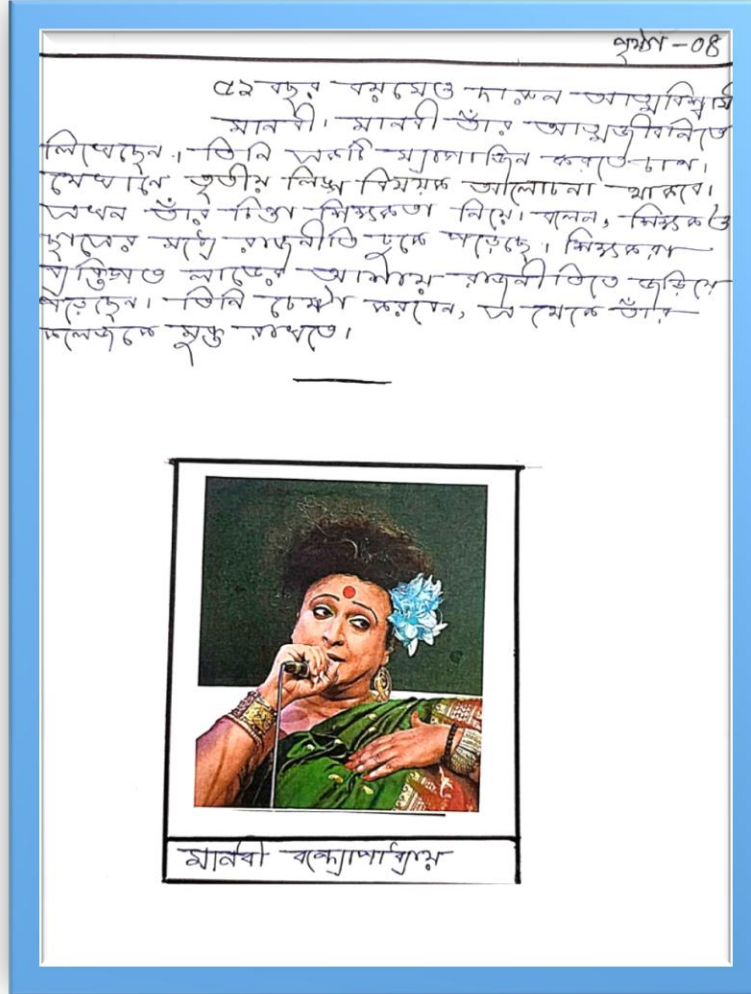 পৃষ্ঠা - ০৪
৫২ বছর বয়সেও দারুন আত্মবিশ্বাসী
মানবী। মানবী তাঁর আত্মজীবনিতে
লিখেছেন। তিনি একটি ম্যাগাজিন করতে চান।
সেখানে তৃতীয় লিঙ্গ বিষয়ক আলোচনা থাকবে।
এখন তাঁর চিন্তা শিক্ষকতা নিয়ে। বলেন, শিক্ষক ও
ছাত্রের মধ্যে রাজনীতি ঢুকে পড়েছে। শিক্ষকরা
ব্যক্তিগত লাভের আশায় রাজনীতিতে জড়িয়ে
পড়েছেন। তিনি চেষ্টা করবেন, এ থেকে তাঁর
কলেজকে মুক্ত রাখতে।
মানবী বন্দ্যোপাধ্যায়